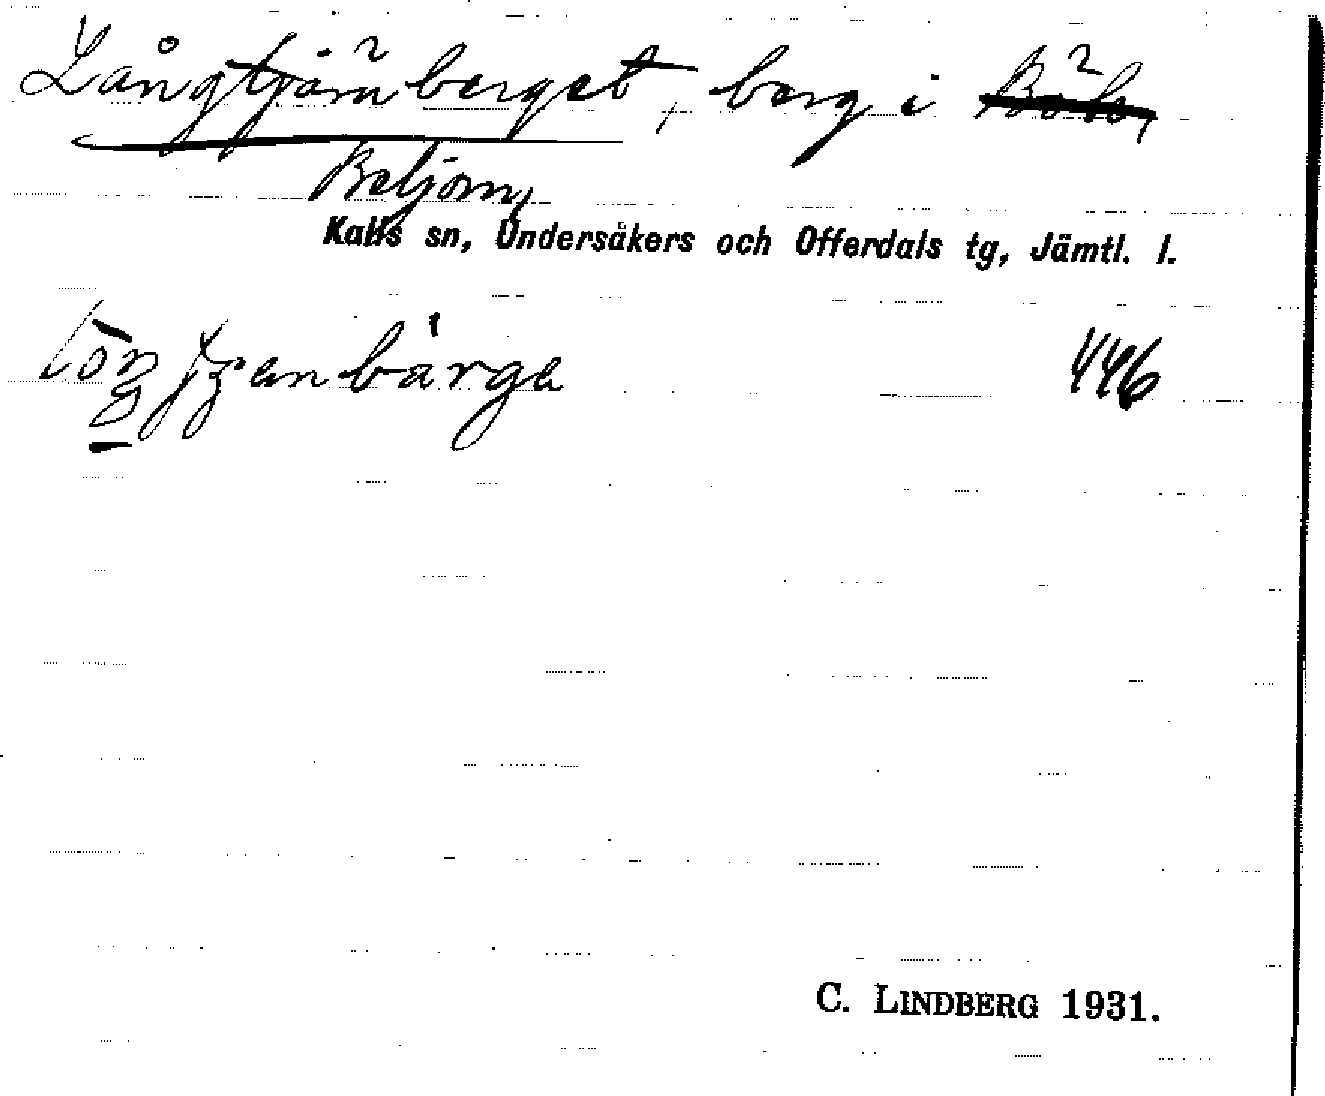 Långtjärnberget, berg i
Beljom,
Kalls sn, Undersåkers och Offerdals tg, Jämtl. l.
446
C. LINDBERG 1931.